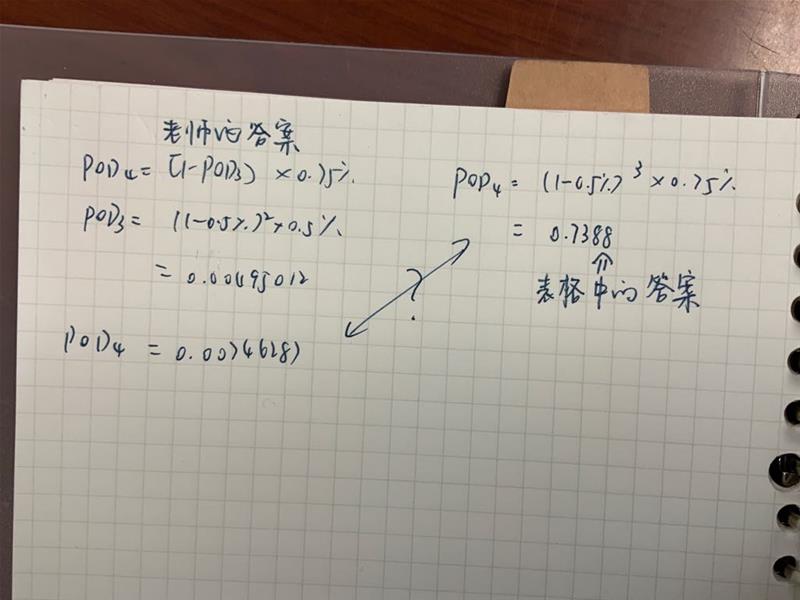 老师的答案
POD₄ = (1-POD₃) × 0.75%
POD₃ = (1-0.5%)² × 0.5%
= 0.00495012
POD₄ = 0.00746287
?
POD₄ = (1-0.5%)³ × 0.75%
= 0.7388
⇑
表格中的答案